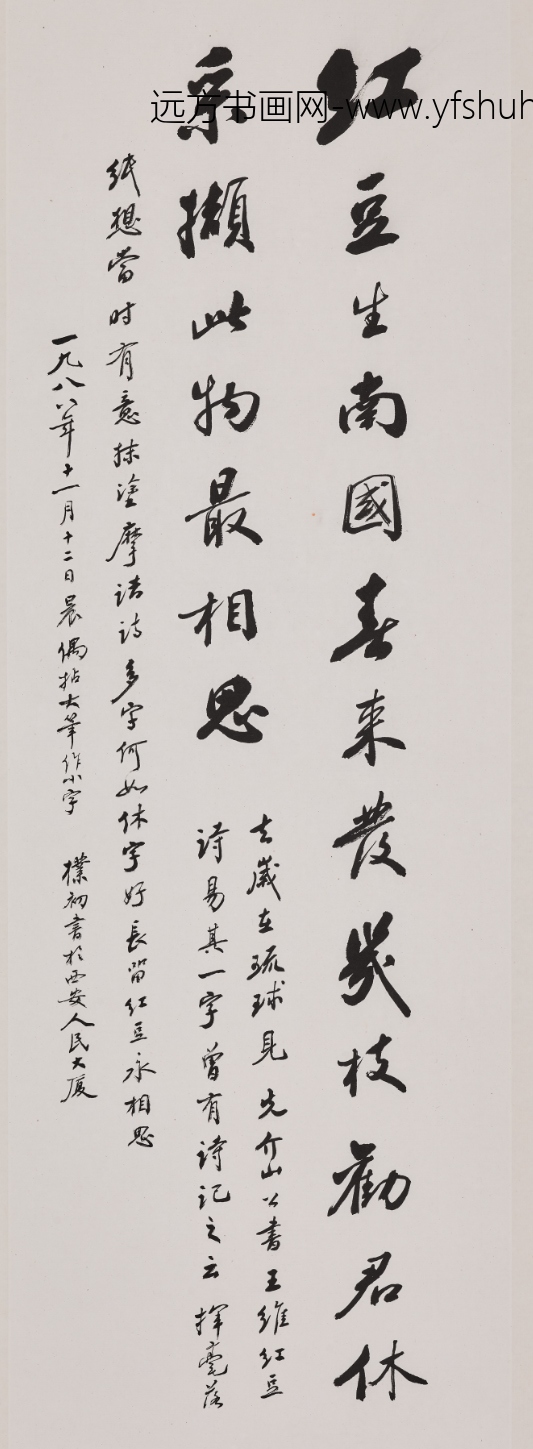 红豆生南國春来發幾枝勸君休
采擷此物最相思
去歲在琉球見 先介山公書王維红豆
詩易其一字曾有詩记之云 揮毫落
紙想當时有意抹塗摩诘诗多字何如休字好長留红豆永相思
一九八八年十一月十二日晨偶拈大筆作小字 樸初書於西安人民大厦
远方书画网-www.yfshuh